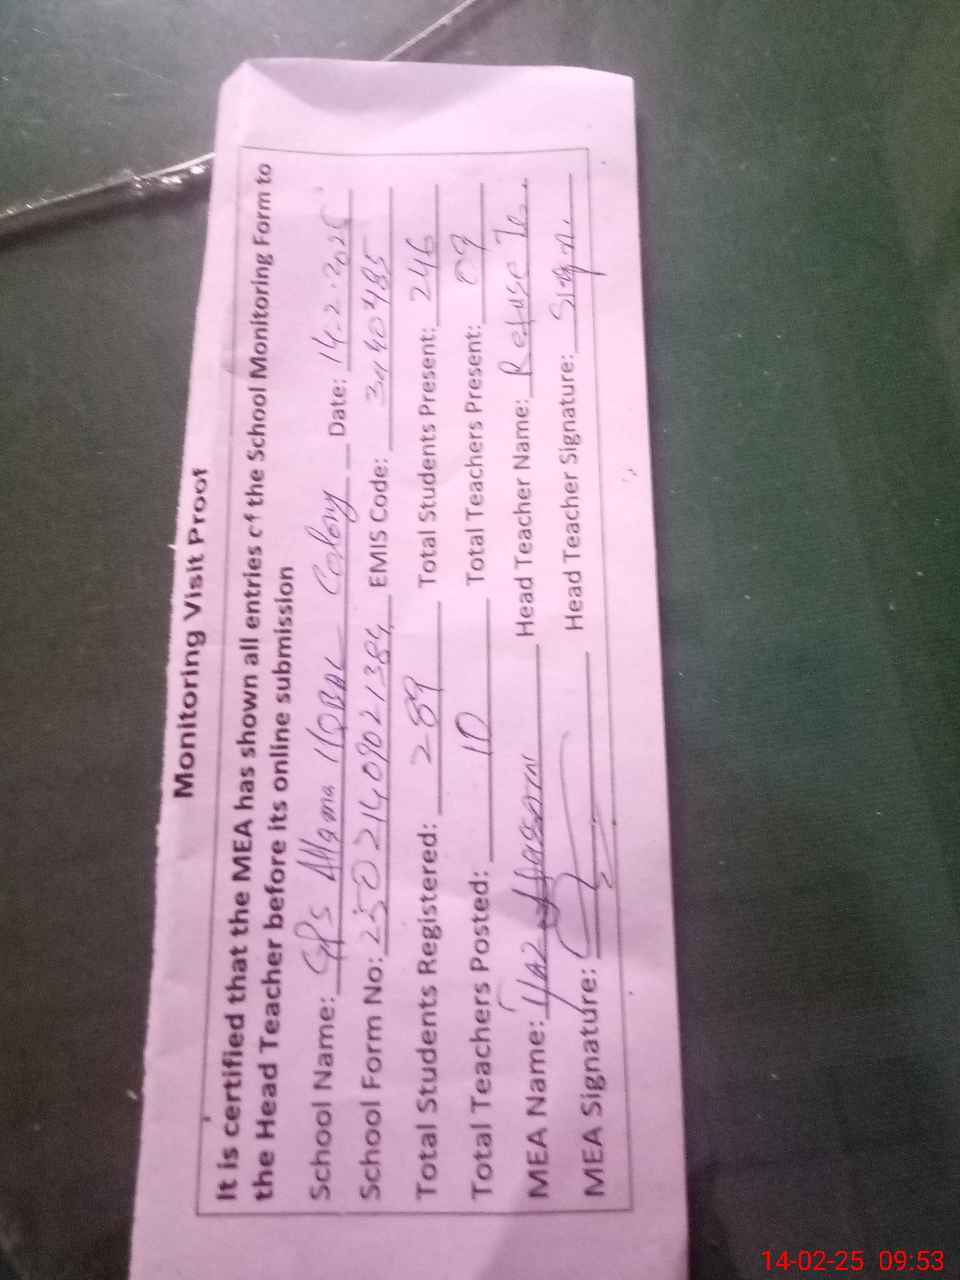 Monitoring Visit Proof
It is certified that the MEA has shown all entries of the School Monitoring Form to
the Head Teacher before its online submission
School Name: GPS Allama IQBAL Colony Date: 14-2-2025
School Form No: 25021409021384 EMIS Code: 3440485
Total Students Registered: 289 Total Students Present: 246
Total Teachers Posted: 10 Total Teachers Present: 09
MEA Name: Head Teacher Name: Refuse To
MEA Signature: Head Teacher Signature: Sign
14-02-25 09:53